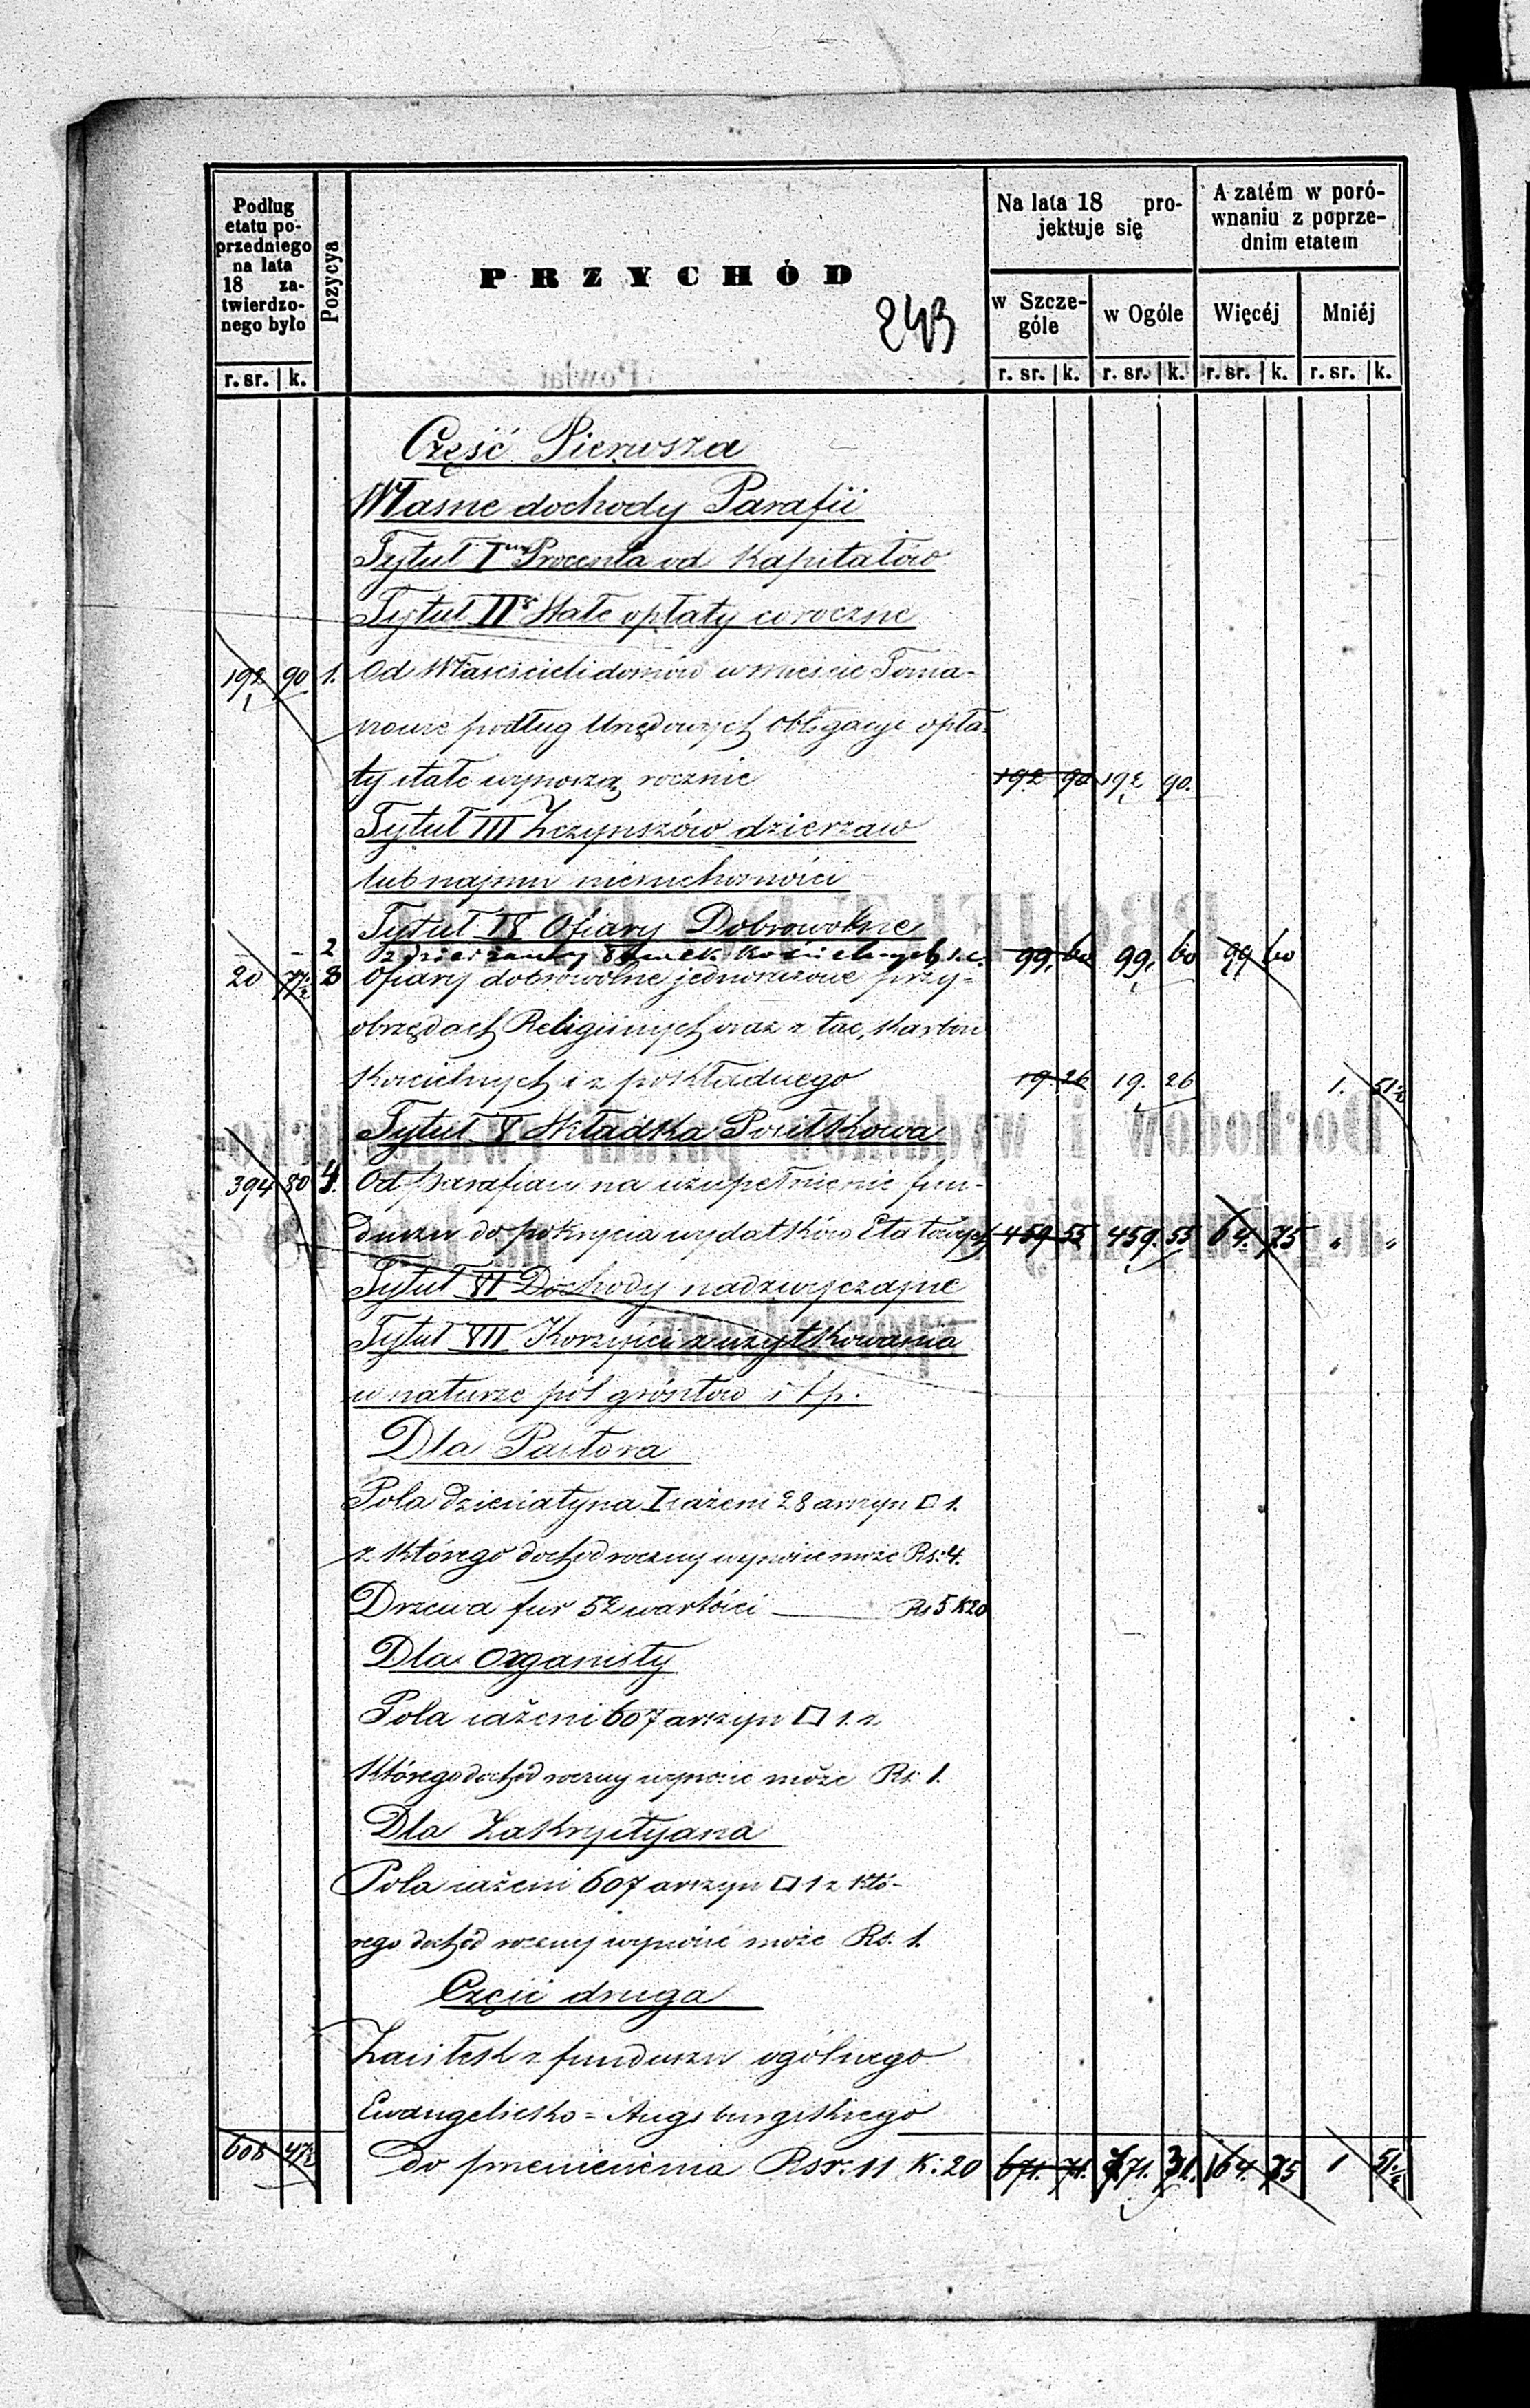 Podług
etatu po-
przedniego
na lata
18 za-
twierdzo-
nego było
r. sr. k.
Pozycya
PRZYCHÓD
243
Na lata 18 pro-
jektuje się
w Szcze-
góle
w Ogóle
r. sr. k. r. sr. k.
A zatém w poró-
wnaniu z poprze-
dnim etatem
Więcéj
Mniéj
r. sr. k. r. sr. k.
Część Pierwsza
Własne dochody Parafii
Tytuł I Procenta od Kapitałów
Tytuł II Stałe opłaty coroczne
192 90 1. Od Właścicieli domów w mieście Toma-
szowie podług Urzędowych Obligacyi opła-
ty stałe wynoszą rocznie 192 90 192 90.
Tytuł III Z czynszów dzierżaw
lub najmu nieruchomości
Tytuł IV Ofiary Dobrowolne
- - 2 Z dzierżawy ławek Kościelnych 99. 60 99. 60 99 60
20 77½ 3 Ofiary dobrowolne jednorazowe przy-
obrzędach Religijnych oraz z tac, Karbon
Kościelnych i z pokładnego 19 26 19. 26 1. 51½
Tytuł V Składka Posiłkowa
394 80 4. Od parafian na uzupełnienie fun-
duszu do pokrycia wydatków Etatowych 459 55 459. 55 64. 75 " "
Tytuł VI Dochody nadzwyczajne
Tytuł VII Korzyści z użytkowania
w naturze pól gróntów i t p.
Dla Pastora
Pola dziesiatyna I sażeni 28 arszyn □ 1.
z którego dochód roczny wynosić może Rs: 4.
Drzewa fur 52 wartości Rs 5 K 20
Dla Organisty
Pola sażeni 607 arszyn □ 1. z
którego dochód roczny wynosić może Rs. 1.
Dla Zakrystyana
Pola sażeni 607 arszyn □ 1 z któ-
rego dochód roczny wynosić może Rs. 1.
Część druga
Zasiłek z funduszu ogólnego
Ewangelicko = Augsburgskiego
608 47½ do przeniesienia Rsr. 11 K: 20 671. 71. 771. 31. 164. 35 1 51½